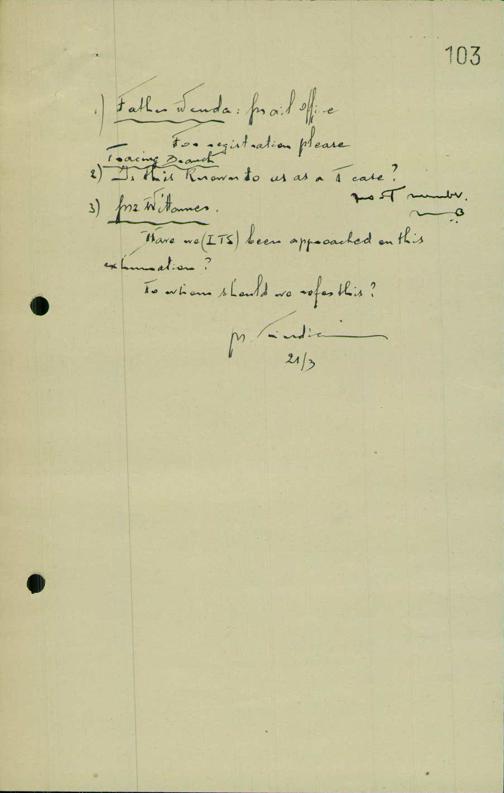 103
1) Father Wenda: mail office
For registration please
Tracing Branch
2) Is this Known to us as a T case?
no T number.
3) Mr Wittamer.
Have we (ITS) been approached on this
exhumation?
To whom should we refer this?
21/3